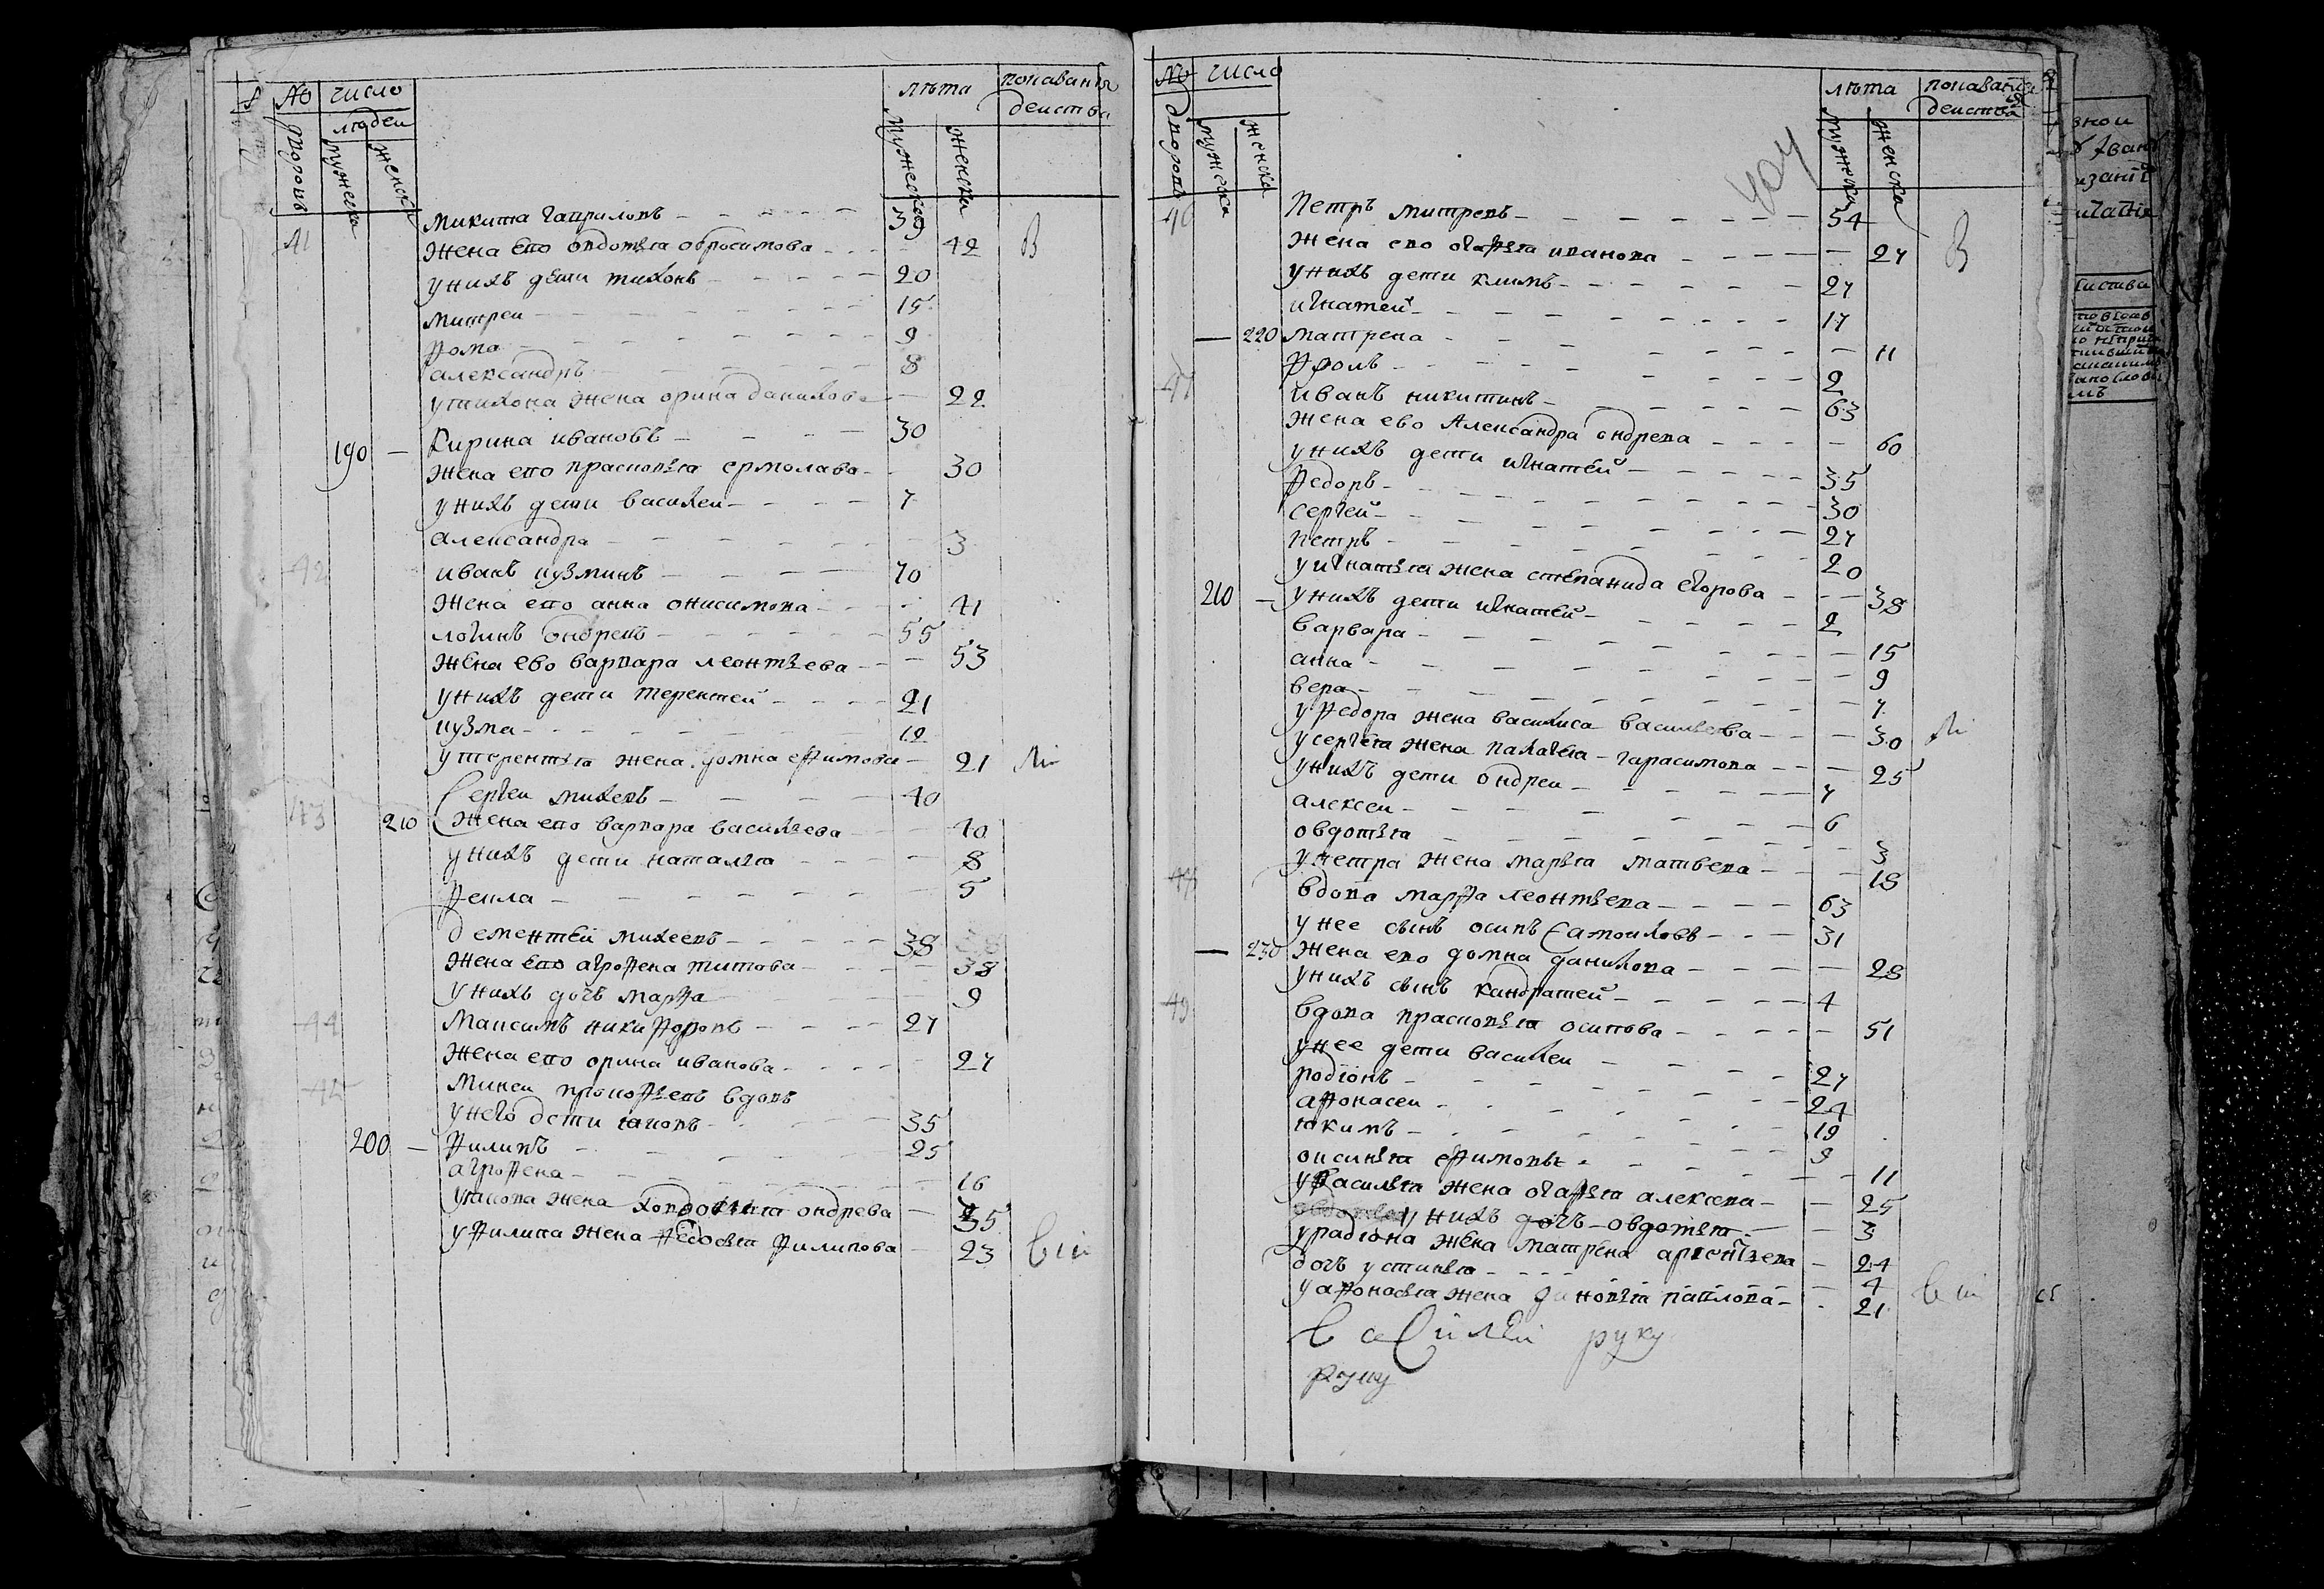 No число лѣта показанiя
людеи деиства
дворовъ мужеска женска мужеска женска
41 микита гавриловъ 39
жена ево овдотья обросимова 42 В
у нихъ дети тихонъ 20
митреи 15
фома 9
александръ 8
у тихона жена орина данилова 22
190 Кирила ивановъ 30
жена ево прасковья ермолава 30
у нихъ дети василеи 7
александра 3
42 иванъ кузминъ 70
жена ево анна онисимова 41
логинъ ондревъ 55
жена ево варвара леонтьева 53
у нихъ дети терентеи 21
кузма 12
у терентья жена домна ефимова 21 ли
43 Сергеи михевъ 40
210 жена ево варвара васильева 40
у нихъ дети наталья 8
фекла 5
дементеи михеевъ 38
жена ево агрофена титова 38
у нихъ дочь марфа 9
44 Максимъ никифоровъ 27
жена ево орина иванова 27
45 Микеи прокофьевъ вдовъ
у него дети яковъ 35
200 филипъ 25
агрофена 16
у якова жена ондрева 35
у филипа жена федосья филипова 23 вси
No число лѣта показанiя
деиства
дворовъ мужеска женска мужеска женска
46 Петръ митревъ 54
жена ево огафья иванова 27 В
у нихъ дети климъ 27
игнатей 17
220 матрена 11
фролъ 2
47 иванъ никитинъ 63
жена ево Александра ондрева 60
у нихъ дети игнатей 35
федоръ 30
сергей 27
петръ 20
у игнатья жена степанида егорова 38
210 у нихъ дети игнатей 2
варвара 15
анна 9
вера 7
у федора жена василиса васильева 30 ли
у сергея жена палагея гарасимова 25
у нихъ дети ондреи 7
алексеи 6
овдотья 3
у петра жена марья матвева 18
48 вдова марфа леонтьева 63
у нее сынъ осипъ самоиловъ 31
230 жена ево домна данилова 28
у нихъ сынъ кандратей 4
49 вдова прасковья осипова 51
у нее дети василеи 27
родiонъ 24
афонасеи 19
якимъ 9
оксинья ефимовы 11
у василья жена огафья алексева 25
у нихъ дочь овдотья 3
у радiона жена матрена арсентьева 24
дочь устинья 4
у афонасья жена зиновья павлова 21 вси
василеи руку
руку